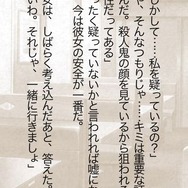 かして……私を疑っているの？」
や、そんなつもりじゃ……キミは重要な
んだ。殺人鬼の顔を見ているから狙われ
性だってある」
ったく疑っていないかと言われれば嘘に
今は彼女の安全が一番だ。
女は、しばらく考え込んだあと、答えた。
いわ。それじゃ、一緒に行きましょ」